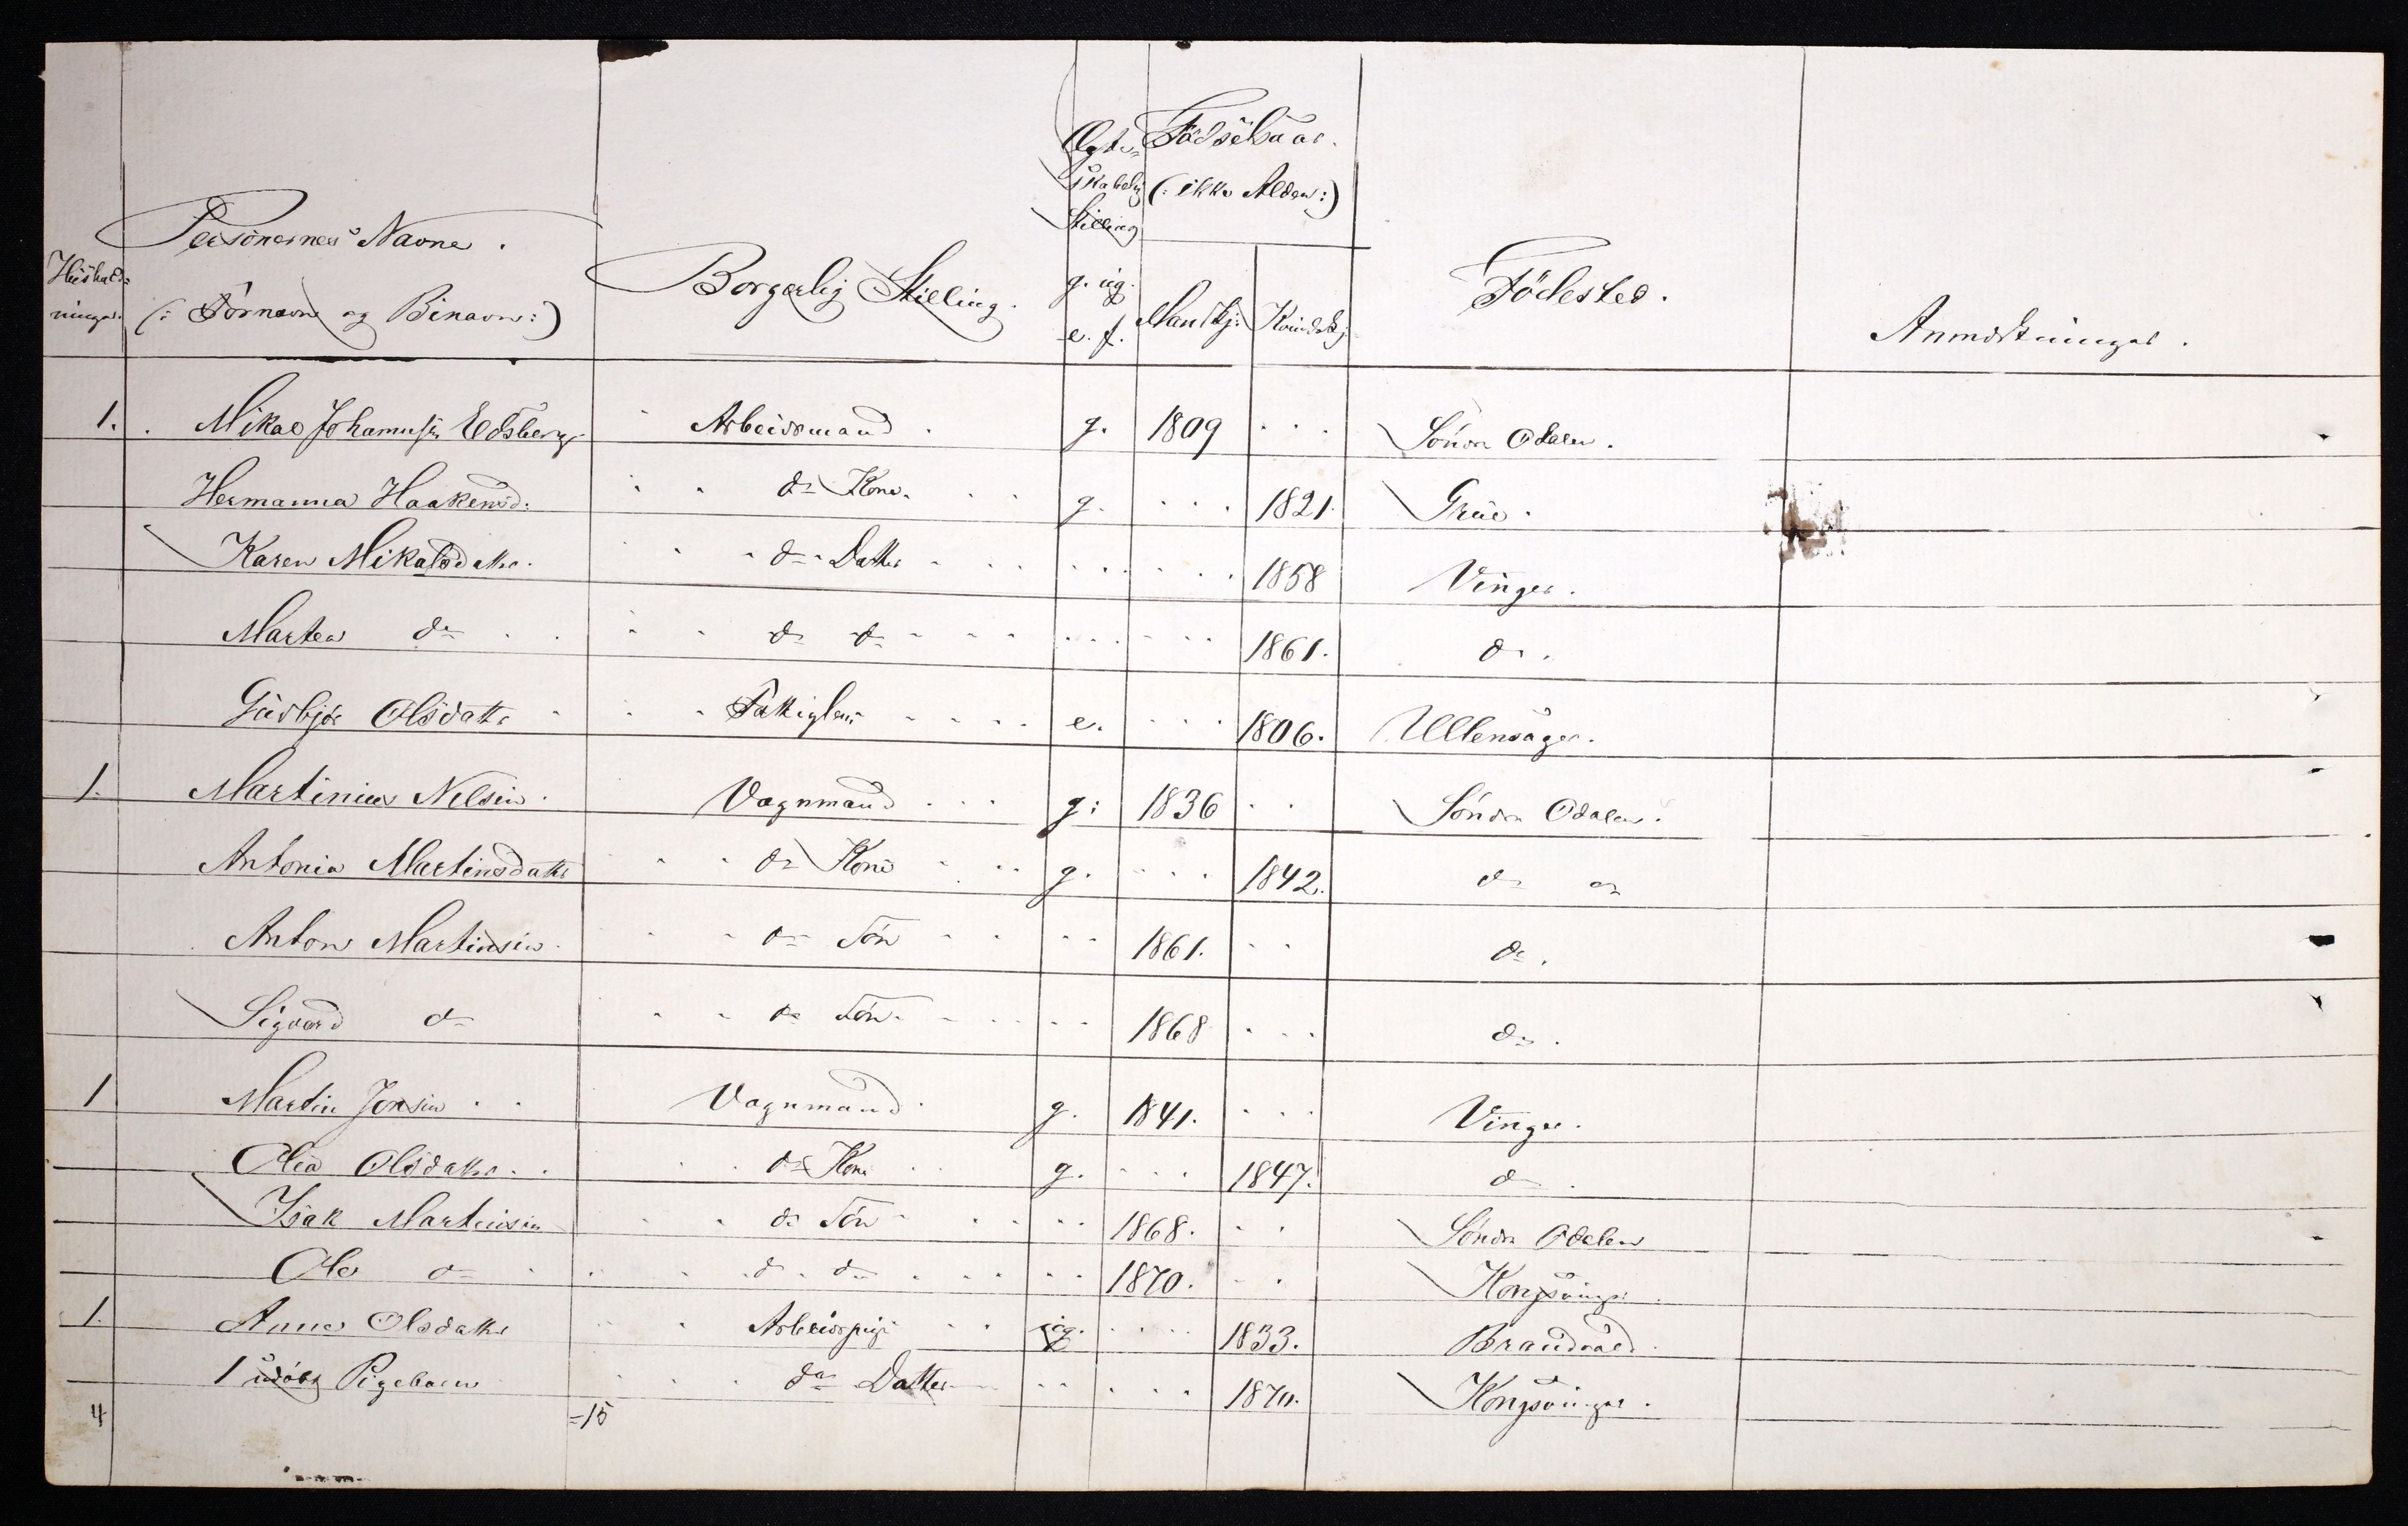 Husholdninger. Personernes Navne. (: Fornavn og Binavn:) Borgerlig Stilling. Egteskabelig Stilling g. ug. e. f. Födselsaar. (: ikke Alder:) Mandkj: Kvindekj Födested. Anmærkninger.
1. Mikal Johannesen Edsberg Arbeidsmand. g. 1809 Söndre Odalen.
Hermanna Haakensd: do Kone. g. 1821. Grue.
Karen Mikalsdatter. do Datter 1858 Vinger.
Marten do do do 1861. do.
Gurbjör Olsdatter Fattiglem e. 1806. Ullensager.
1. Martinius Nilsen. Vognmand g: 1836 Söndre Odalen.
Antonia Martinsdatter do Kone g. 1842. do do
Anton Martinsen. do Sön 1861. do.
Sigvard do do Sön. 1868 do.
1 Martin Jonsen Vognmand. g. 1841. Vinger.
Olea Olsdatter. do Kone g. 1847. do.
Isak Martinsen do Sön 1868. Söndre Odalen
Ole do do do 1870. Kongsvinger.
1. Anne Olsdatter Arbeidspige ug. 1833. Brandvold.
1 udöbt Pigebarn do Datter 1870. Kongsvinger.
4 =15